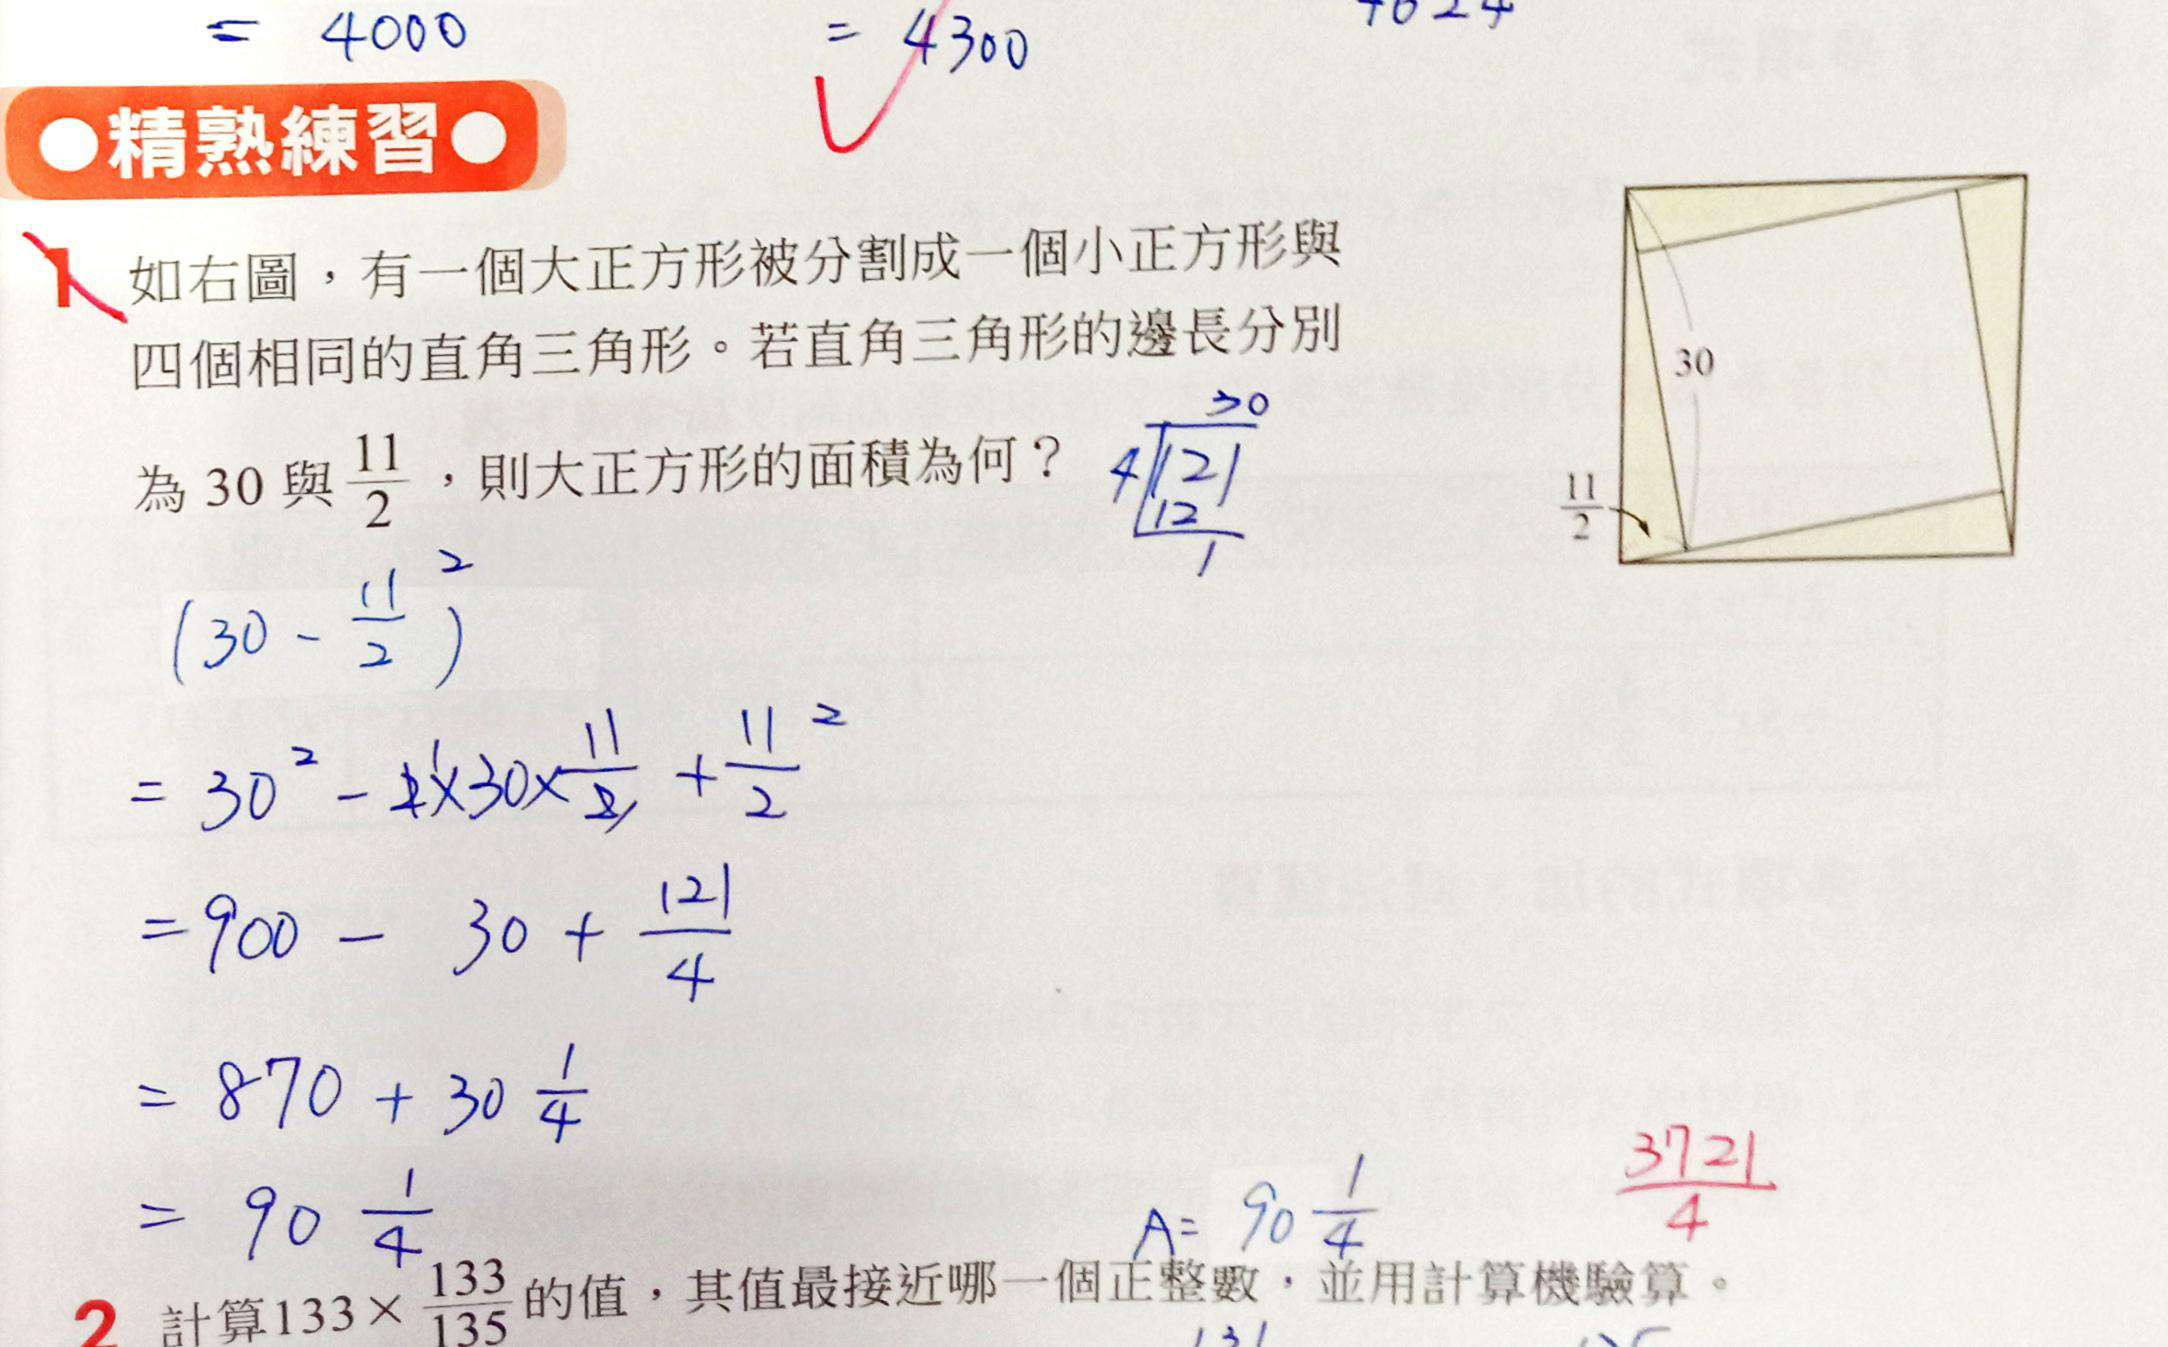 = 4000
= 4300
精熟練習
1 如右圖,有一個大正方形被分割成一個小正方形與
四個相同的直角三角形。若直角三角形的邊長分別
為 30 與 11/2 ,則大正方形的面積為何?
30
4 121
12
1
30
11/2
(30 - 11/2)²
= 30² - 2 1 × 30 × 11/2 + 11/2 ²
= 900 - 30 + 121/4
= 870 + 30 1/4
= 90 1/4
A = 90 1/4
3721/4
2 計算133× 133/135 的值,其值最接近哪一個正整數,並用計算機驗算。